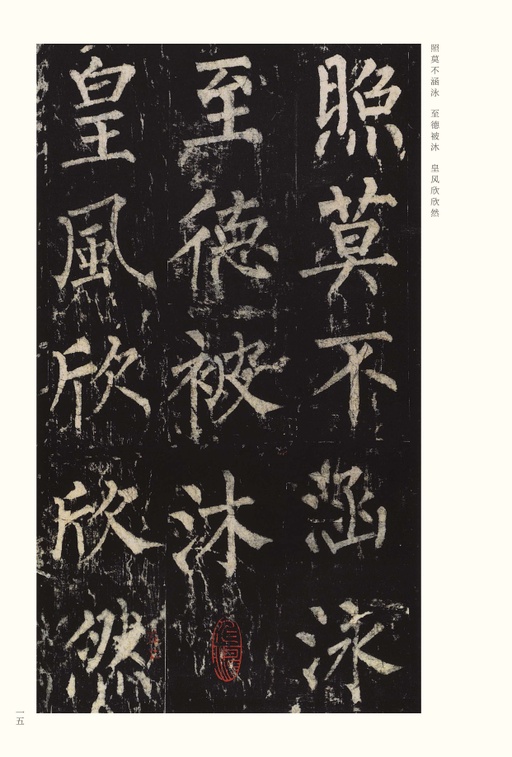 照莫不涵泳 至德被沐 皇风欣欣然
照莫不涵泳
至德被沐
皇風欣欣然
一五